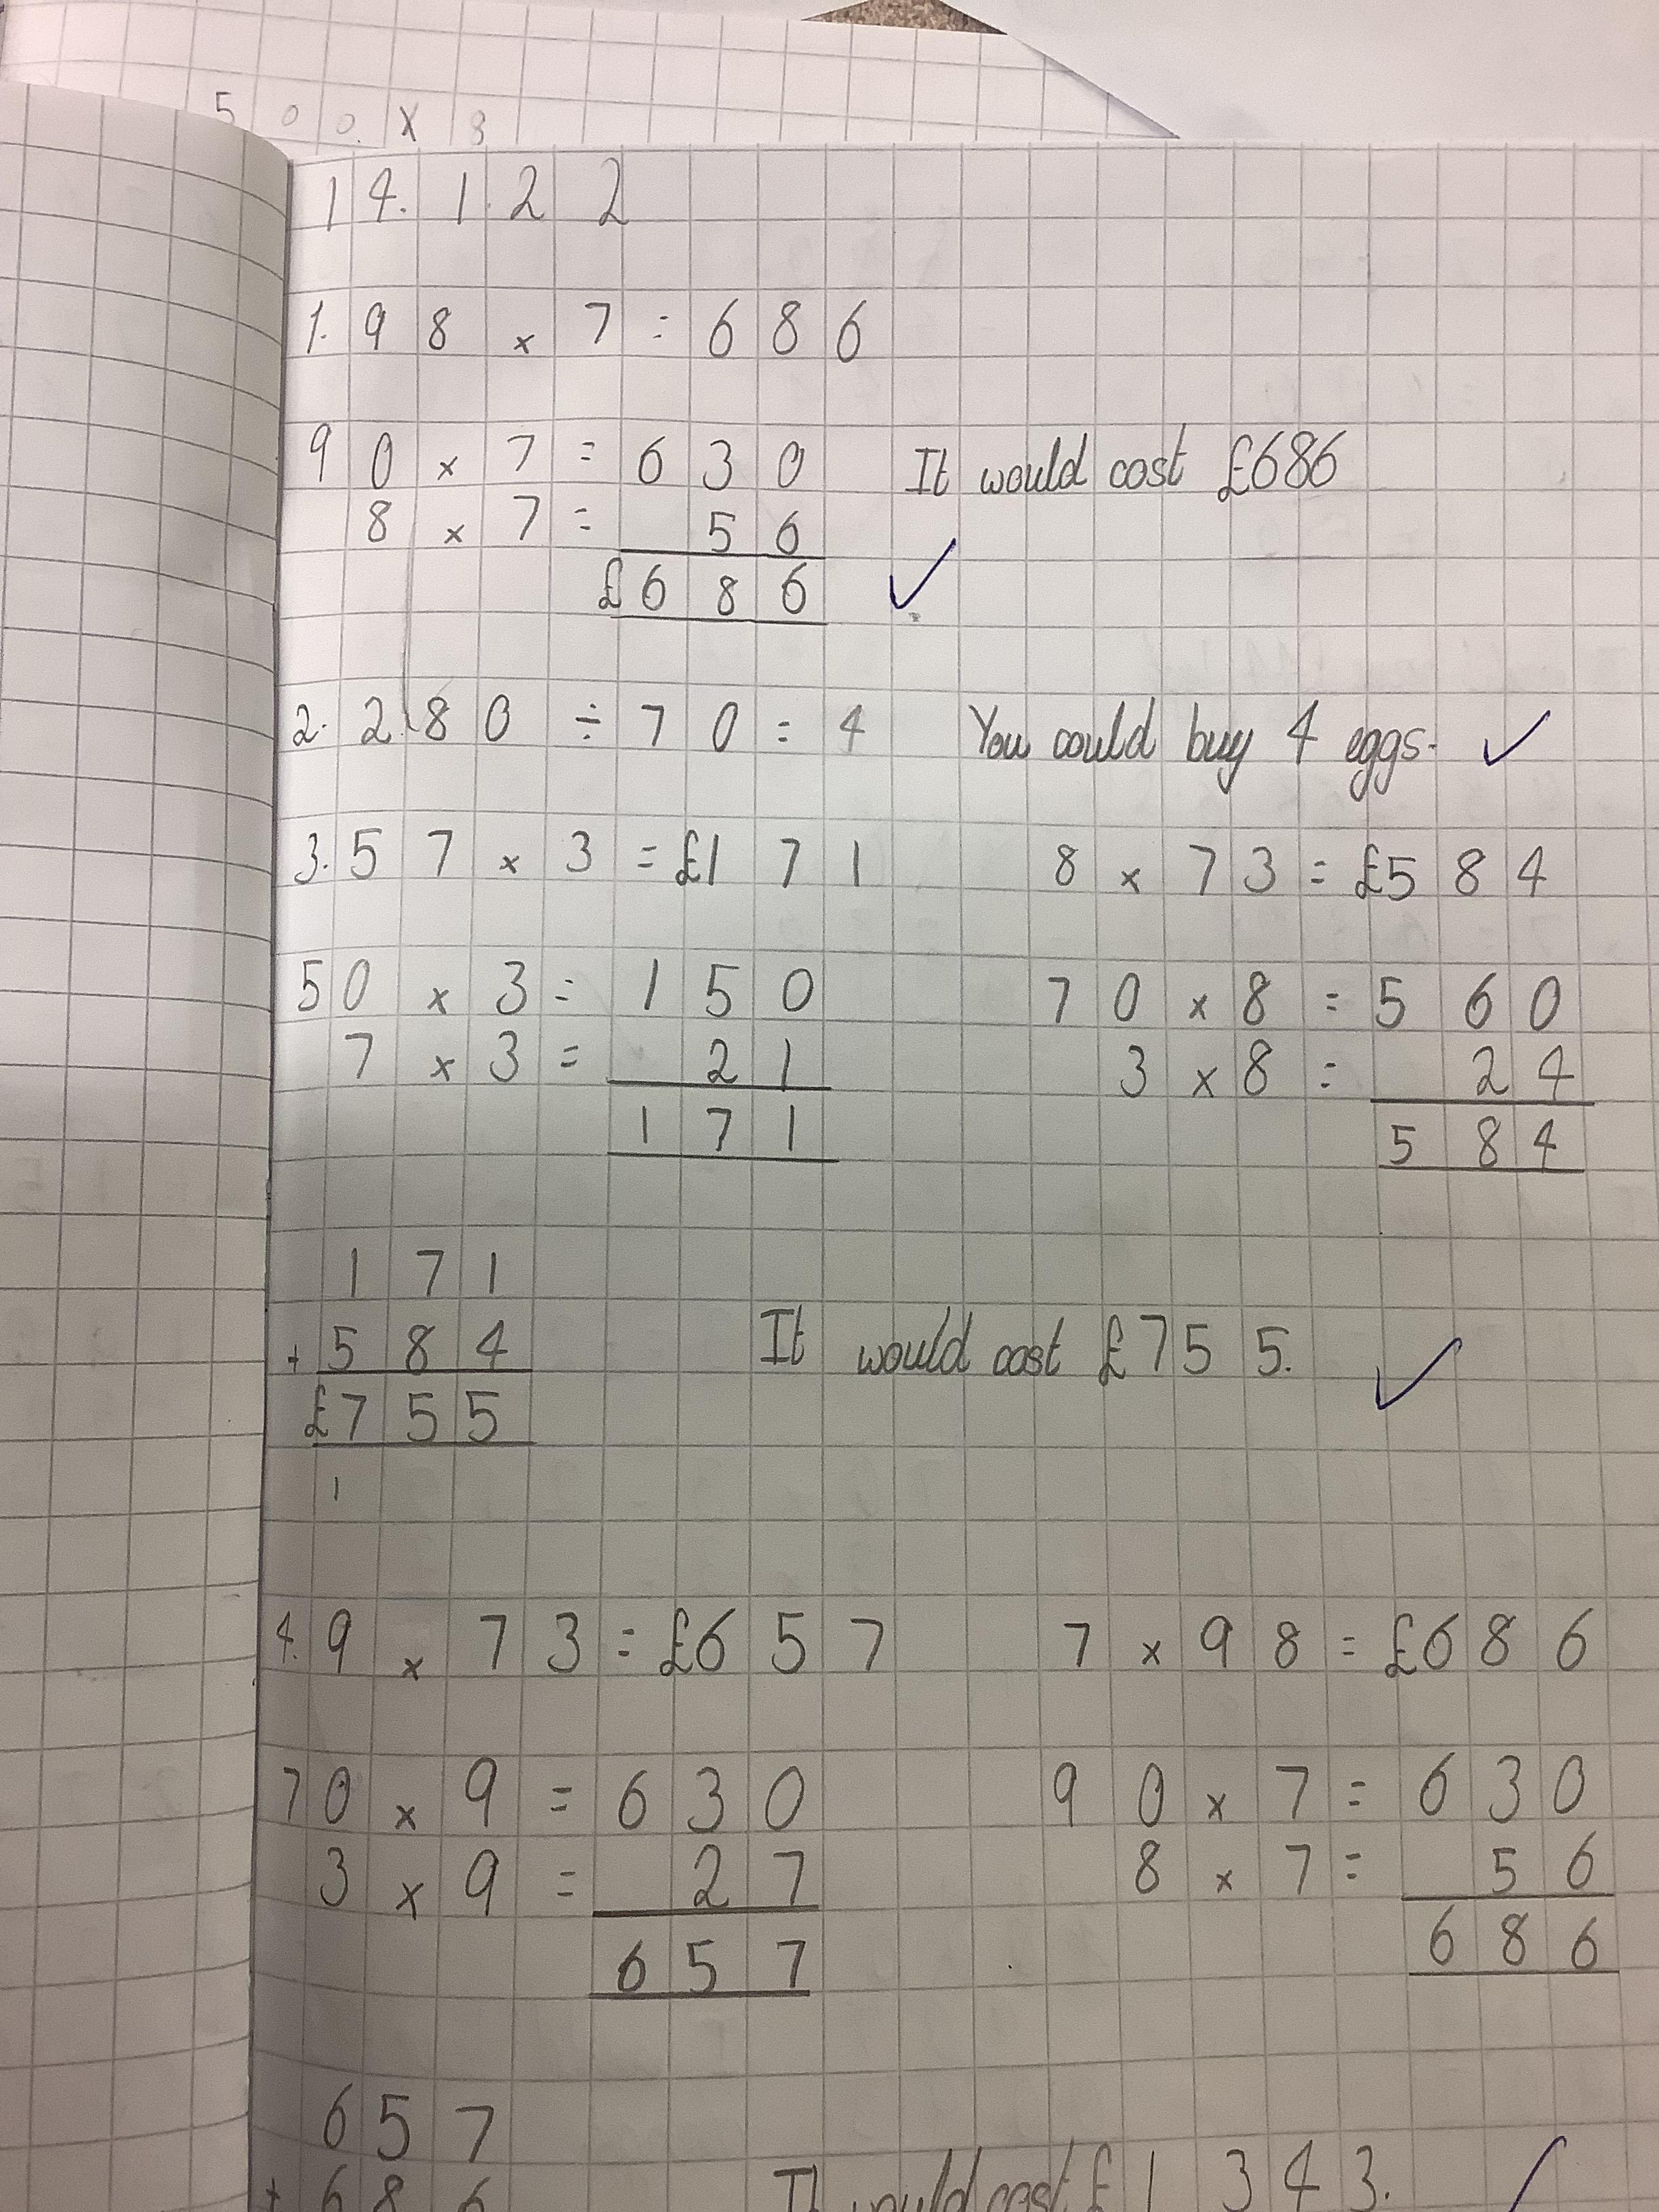 500 x 8
14.1.22
1. 98 x 7 = 686
90 x 7 = 630 It would cost £686
8 x 7 = 56
£686
2. 280 ÷ 70 = 4 You could buy 4 eggs.
3. 57 x 3 = £171 8 x 73 = £584
50 x 3 = 150 70 x 8 = 560
7 x 3 = 21 3 x 8 = 24
171 584
171
+ 584 It would cost £755.
£755
1
4. 9 x 73 = £657 7 x 98 = £686
70 x 9 = 630 90 x 7 = 630
3 x 9 = 27 8 x 7 = 56
657 686
657
+ 686 It would cost £1343.